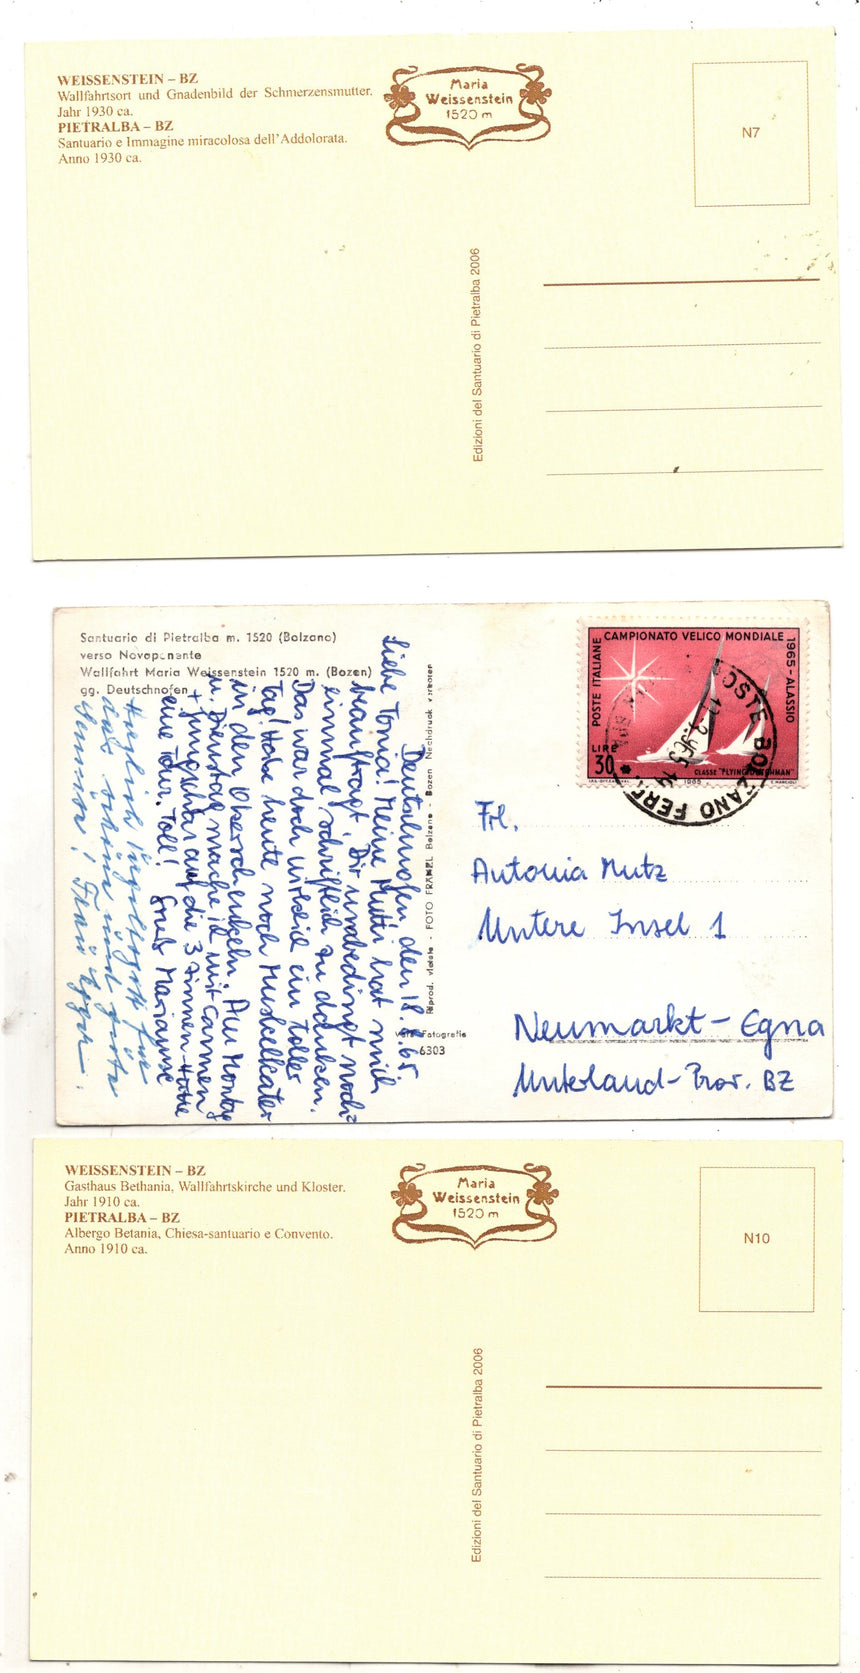 WEISSENSTEIN – BZ
Wallfahrtsort und Gnadenbild der Schmerzensmutter.
Jahr 1930 ca.
PIETRALBA – BZ
Santuario e Immagine miracolosa dell'Addolorata.
Anno 1930 ca.
Maria
Weissenstein
1520 m
N7
Edizioni del Santuario di Pietralba 2006
Santuario di Pietralba m. 1520 (Bolzano)
verso Novaponente
Wallfahrt Maria Weissenstein 1520 m. (Bozen)
gg. Deutschnofen
Deutschnofen, den 18. 8. 65.
Liebe Tonia! Meine Mutti hat mich
beauftragt, Dir unbedingt noch
einmal schriftlich zu danken.
Das war doch wirklich ein toller
Tag! Habe heute noch Muskelkater
in den Oberschenkeln. Am Montag
u. Dienstag mache ich mit Carmen
+ Jungschar auf die 3 Zinnen-Hütte
eine Tour. Toll! Gruß Marianne
Herzlich für
das schöne und gute
Riprod. vietata - FOTO FRÄNZL Bolzano - Bozen Nachdruck verboten
Vera Fotografia
6303
POSTE ITALIANE
CAMPIONATO VELICO MONDIALE
1965 - ALASSIO
LIRE
30
CLASSE "FLYING DUTCHMAN"
1965
POSTE BOLZANO FERR.
Frl.
Antonia Mutz
Untere Insel 1
Neumarkt - Egna
Unterland - Prov. BZ
WEISSENSTEIN – BZ
Gasthaus Bethania, Wallfahrtskirche und Kloster.
Jahr 1910 ca.
PIETRALBA – BZ
Albergo Betania, Chiesa-santuario e Convento.
Anno 1910 ca.
Maria
Weissenstein
1520 m
N10
Edizioni del Santuario di Pietralba 2006